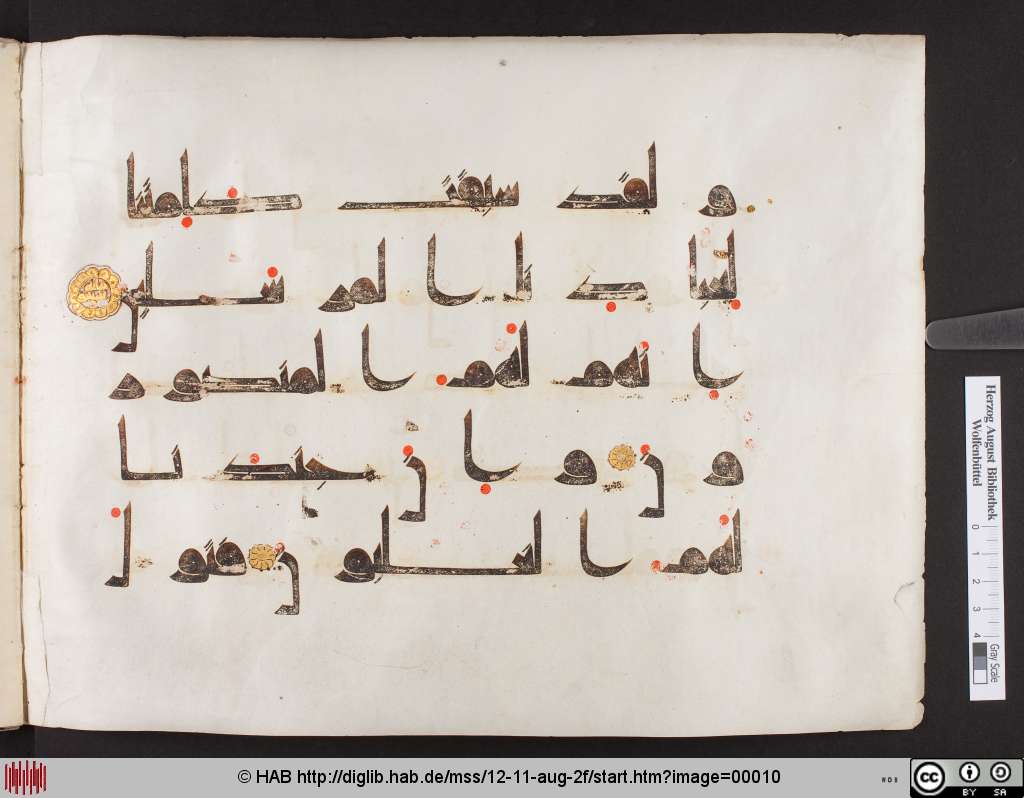 ولقد سبقت كلمتنا
لعبادنا المرسلين
انهم لهم المنصور
ون وان جندنا
لهم الغلبون فتول
Herzog August Bibliothek
Wolfenbüttel
0 1 2 3 4
Gray Scale
© HAB http://diglib.hab.de/mss/12-11-aug-2f/start.htm?image=00010
WDB
cc BY SA